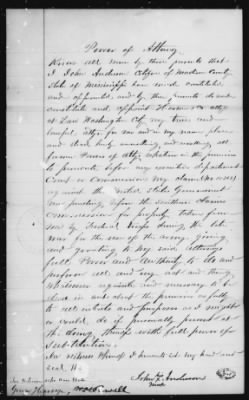 Power of Attorney
Know all men by these presents that
I John Anderson Citizen of Madison County
State of Mississippi have made constituted
and appointed, and by these presents do make
constitute and appoint atty
at Law Washington City my true and
lawful atty for me and in my name place
and stead, hereby annulling, and revoking all
former Powers of Atty whatever in the premises
to prosecute before any executive department
Court or Commission my claim
against the United States Government
now pending before the Southern Claims
Commission for property taken from
me by Federal troops during the late
war for the use of the army, giving
and granting to my said attorney
full Power and Authority to do and
perform all and any act and thing
whatsoever requisite and necessary to be
done in and about the premises as fully
to all intents and purposes as I might
or could do if personally present at
the doing thereof with full power of
Substitution.
In witness Whereof I hereunto set my hand and
seal
John his Anderson
mark